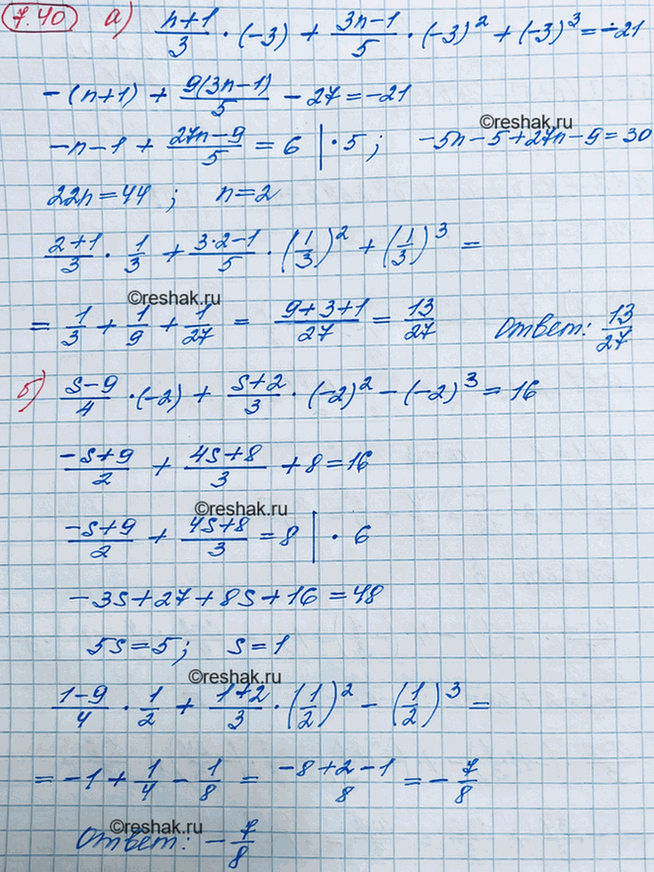 7.40 а) (n+1)/3 · (-3) + (3n-1)/5 · (-3)² + (-3)³ = -21
-(n+1) + 9(3n-1)/5 - 27 = -21
©reshak.ru
-n-1 + (27n-9)/5 = 6 | · 5 ; -5n-5+27n-9=30
22n=44 ; n=2
(2+1)/3 · 1/3 + (3·2-1)/5 · (1/3)² + (1/3)³ =
©reshak.ru
= 1/3 + 1/9 + 1/27 = (9+3+1)/27 = 13/27 Ответ: 13/27
б) (s-9)/4 · (-2) + (s+2)/3 · (-2)² - (-2)³ = 16
(-s+9)/2 + (4s+8)/3 + 8 = 16
©reshak.ru
(-s+9)/2 + (4s+8)/3 = 8 | · 6
-3s+27+8s+16=48
5s=5; s=1
©reshak.ru
(1-9)/4 · 1/2 + (1+2)/3 · (1/2)² - (1/2)³ =
= -1 + 1/4 - 1/8 = (-8+2-1)/8 = -7/8
©reshak.ru
Ответ: -7/8